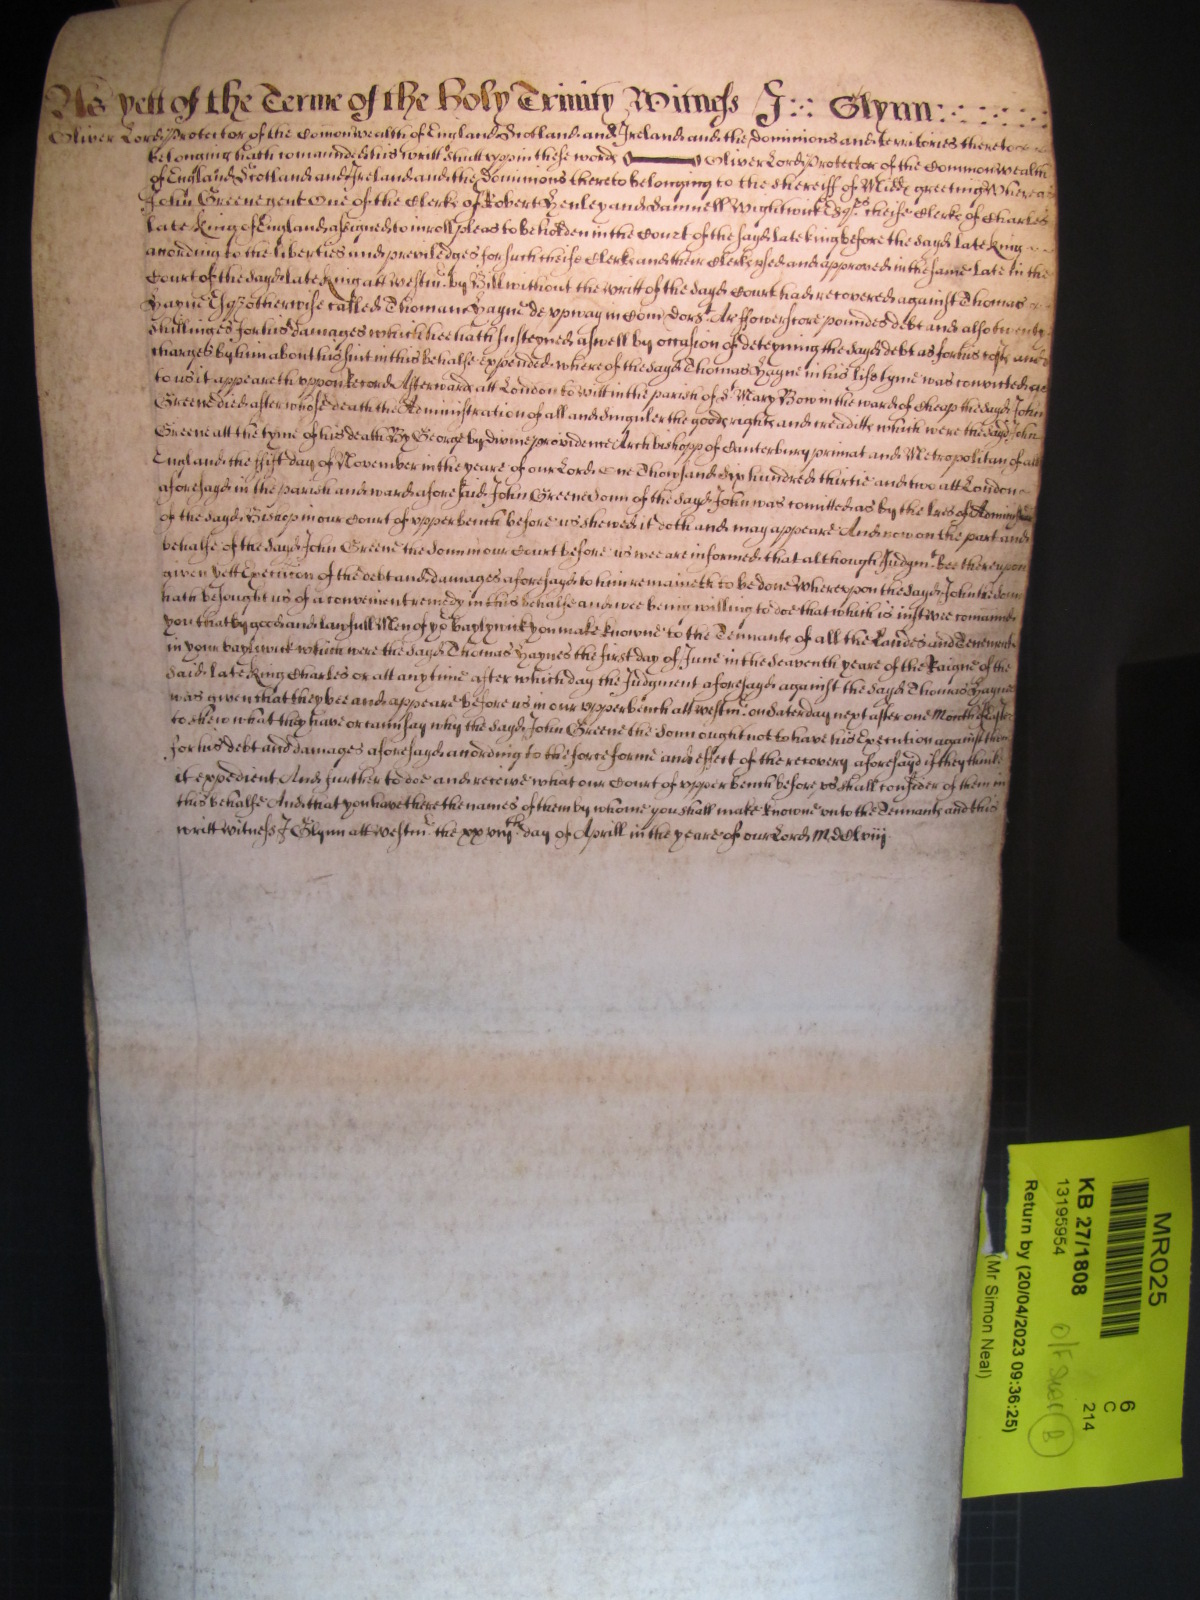 As yett of the Terme of the Holy Trinity Witness J: Glynn:
Oliver Lord Protector of the Comonwealth of England Scotland and Ireland and the dominions and territories thereto
belonging hath comaunded his writt shutt upp in these words Oliver Lord Protector of the Commonwealth
of England Scotland and Ireland and the Dominions thereto belonging to the Sheriff of Midd greeting Whereas
John Greene gent One of the Clerks of Robert Henley and Samuell Wightwick Esqrs cheife Clerke of Charles
late King of England assigned to inroll pleas to be holden in the Court of the sayd late King before the sayd late King
according to the liberties and priviledges for such cheife Clerks and their Clerks used and approved in the same late in the
Court of the sayd late King att Westmr by Bill without the writt of the sayd Court had recovered against Thomas
Hayne Esqr otherwise called Thomam Hayne de upway in Com Dorst Ar fowerscore poundes debt and also twenty
shillinges for his damages which hee hath susteyned aswell by occasion of deteyning the sayd debt as for his costs and
charges by him about his suit in this behalfe expended whereof the sayd Thomas Hayne in his life tyme was convicted as
to us it appeareth uppon Record Afterward att London to witt in the parish of St Mary Bow in the ward of Cheap the sayd John
Greene died after whose death the Administration of all and singuler the goods rights and creaditts which were the sayd John
Greene att the tyme of his death By George by divine providence Arch bishopp of Canterbury primat and Metropolitan of all
England the first day of November in the yeare of our Lord One Thowsand six hundred thirtie and two att London
aforesayd in the parish and ward aforesaid John Greene Sonn of the sayd John was comitted as by the lres of Administracon
of the sayd Bishop in our Court of upper bench before us shewed it doth and may appeare And now on the part and
behalfe of the sayd John Greene the sonn in our Court before us wee are informed that although Judgmt bee thereupon
given yett Execucon of the debt and damages aforesayd to him remaineth to be done Whereupon the sayd John the sonn
hath besought us of a convenient remedy in this behalfe and wee being willing to doe that which is just wee comaund
you that by good and lawfull Men of yor baylywick you make knowne to the Tennants of all the Landes and Tenements
in your baylywick which were the sayd Thomas Haynes the first day of June in the seaventh yeare of the Raigne of the
said late King Charles or att any time after which day the Judgment aforesayd against the sayd Thomas Hayne
was given that they bee and appeare before us in our upper bench att Westmr on Saterday next after one Month of Easter
to shew what they have or can say why the sayd John Greene the sonn ought not to have his Execution against them
for his debt and damages aforesayd according to the force forme and effect of the recovery aforesayd if they thinke
it expedient And further to doe and receive what our Court of upper bench before us shall consider of them in
this behalfe And that you have there the names of them by whome you shall make knowne unto the Tennants and this
writt Witness J Glynn att Westmr the xxviijth day of Aprill in the yeare of our Lord MDClviij
MR025
KB 27/1808
13195954
Return by (20/04/2023 09:36:25)
(Mr Simon Neal)
6
C
214
B